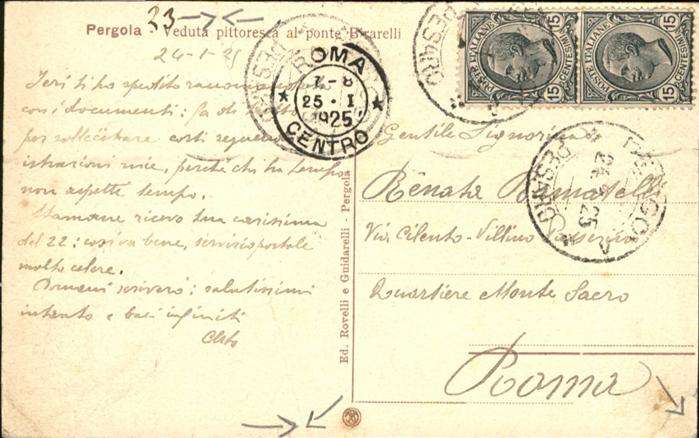 23
Pergola - Veduta pittoresca al ponte Birarelli
24-1-25
Ieri ti ho spedito
con i documenti: fa di
per sollecitare
istrazioni mie, perché chi ha tempo
non aspetti tempo.
Stamane ricevo tua carissima
del 22: così va bene, servizio postale
molto celere.
Domani scriverò: salutissimi
intanto e baci infiniti
Cleto
ROMA
7-8
25·I
1925
CENTRO
POSTE ITALIANE
CENTESIMI
15
15
POSTE ITALIANE
CENTESIMI
15
15
PERGOLA
24 25
PESARO
Gentile Signorina
Renata
Via Cilento - Villino
Quartiere Monte Sacro
Roma
Ed. Rovelli e Guidarelli - Pergola